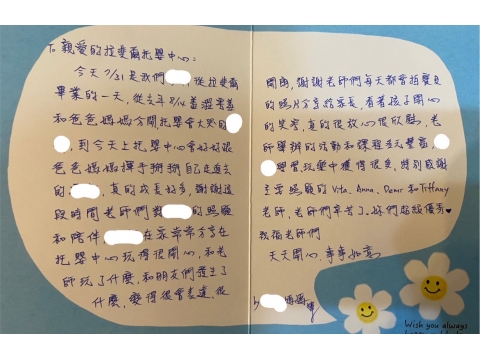 To 親愛的拉斐爾托嬰中心：
今天7/31是我們 從拉斐爾
畢業的一天，從去年8/14當還需要
和爸爸媽媽分開托嬰會大哭的
，到今天上托嬰中心會好好跟
爸爸媽媽揮手掰掰自己走進去
的 ，真的成長好多，謝謝這
段時間老師們對 的照顧
和陪伴， 在家常常分享在
托嬰中心玩得很開心，和老
師玩了什麼，和朋友們發生了
什麼，變得很會表達，從
開朗，謝謝老師們每天都會拍寶貝
的照片分享給家長，看著孩子開心
的笑容，真的很放心很欣慰，老
師舉辦的活動和課程都很豐富，
學習玩樂中獲得很多，特別感謝
主要照顧的Vita、Anna、Demi和Tiffany
老師，老師們辛苦了，妳們超級優秀♥
敬祝老師們
天天開心，事事如意
by 媽媽
Wish you always